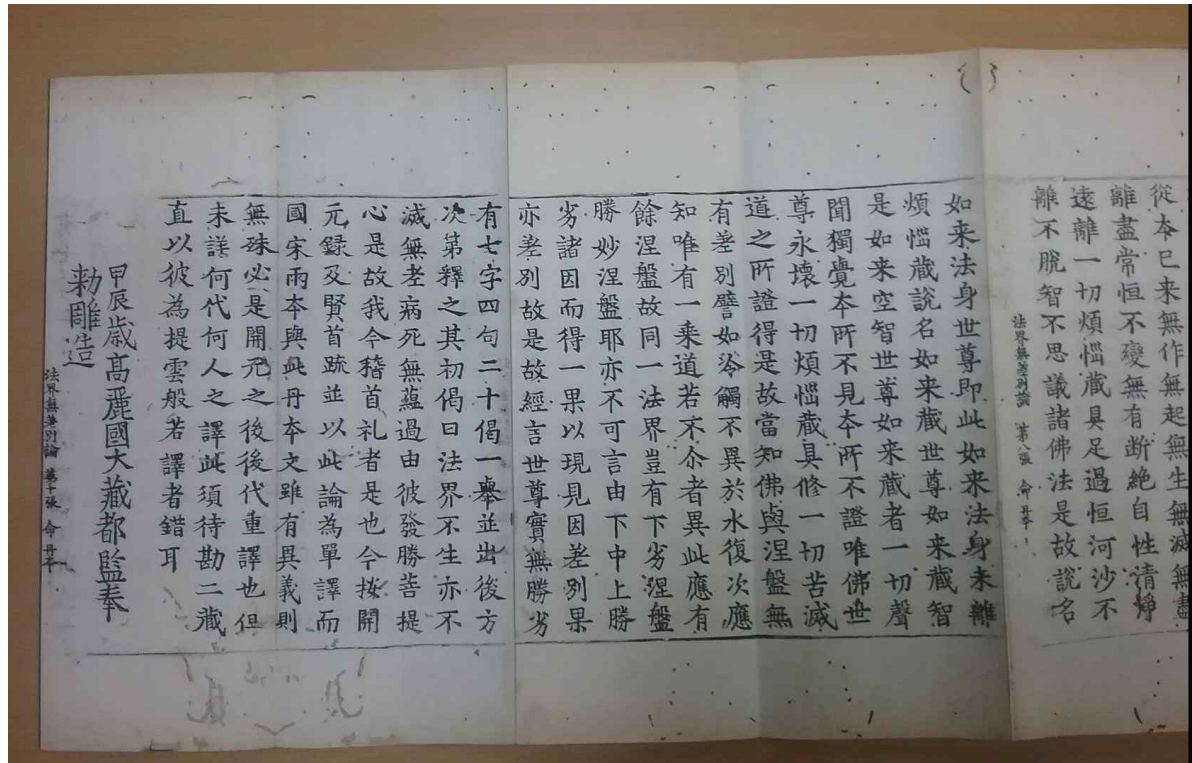 從本已来無作無起無生無滅無盡
離盡常恒不變無有断絶自性清淨
遠離一切煩惱藏具足過恒河沙不
離不脫智不思議諸佛法是故說名
法界無差別論　第八張　命
如来法身世尊即此如来法身未離
煩惱藏說名如来藏世尊如来藏智
是如来空智世尊如来藏者一切聲
聞獨覺本所不見本所不證唯佛世
尊永壞一切煩惱藏具修一切苦滅
道之所證得是故當知佛與涅盤無
有差別譬如冷觸不異於水復次應
知唯有一乗道若不尒者異此應有
餘涅盤故同一法界豈有下劣涅盤
勝妙涅盤耶亦不可言由下中上勝
劣諸因而得一果以現見因差別果
亦差別故是故經言世尊實無勝劣
有七字四句二十偈一舉並出後方
次第釋之其初偈曰法界不生亦不
滅無老病死無蘊過由彼發勝菩提
心是故我今稽首礼者是也今按開
元録及賢首䟽並以此論為單譯而
國宋兩本與此丹本文雖有異義則
無殊必是開元之後後代重譯也但
未詳何代何人之譯此須待勘二藏
直以彼為提雲般若譯者錯耳
甲辰歲高麗國大藏都監奉
勑雕造
法界無差別論　第十張　命　丹本